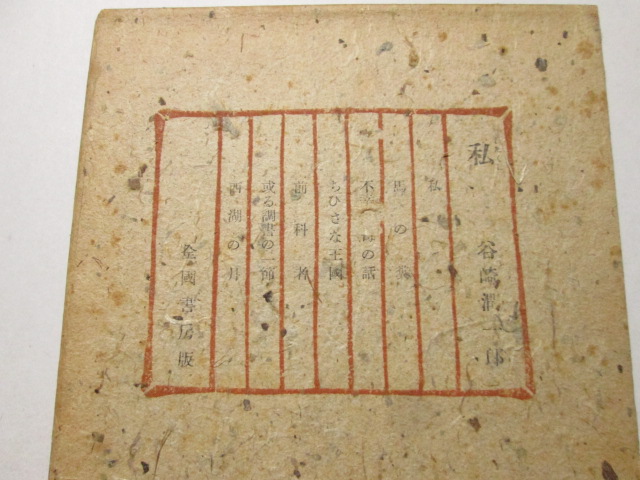 私
谷崎潤一郎
私
馬の糞
不幸な母の話
ちひさな王國
前科者
或る調書の一節
西湖の月
全國書房版